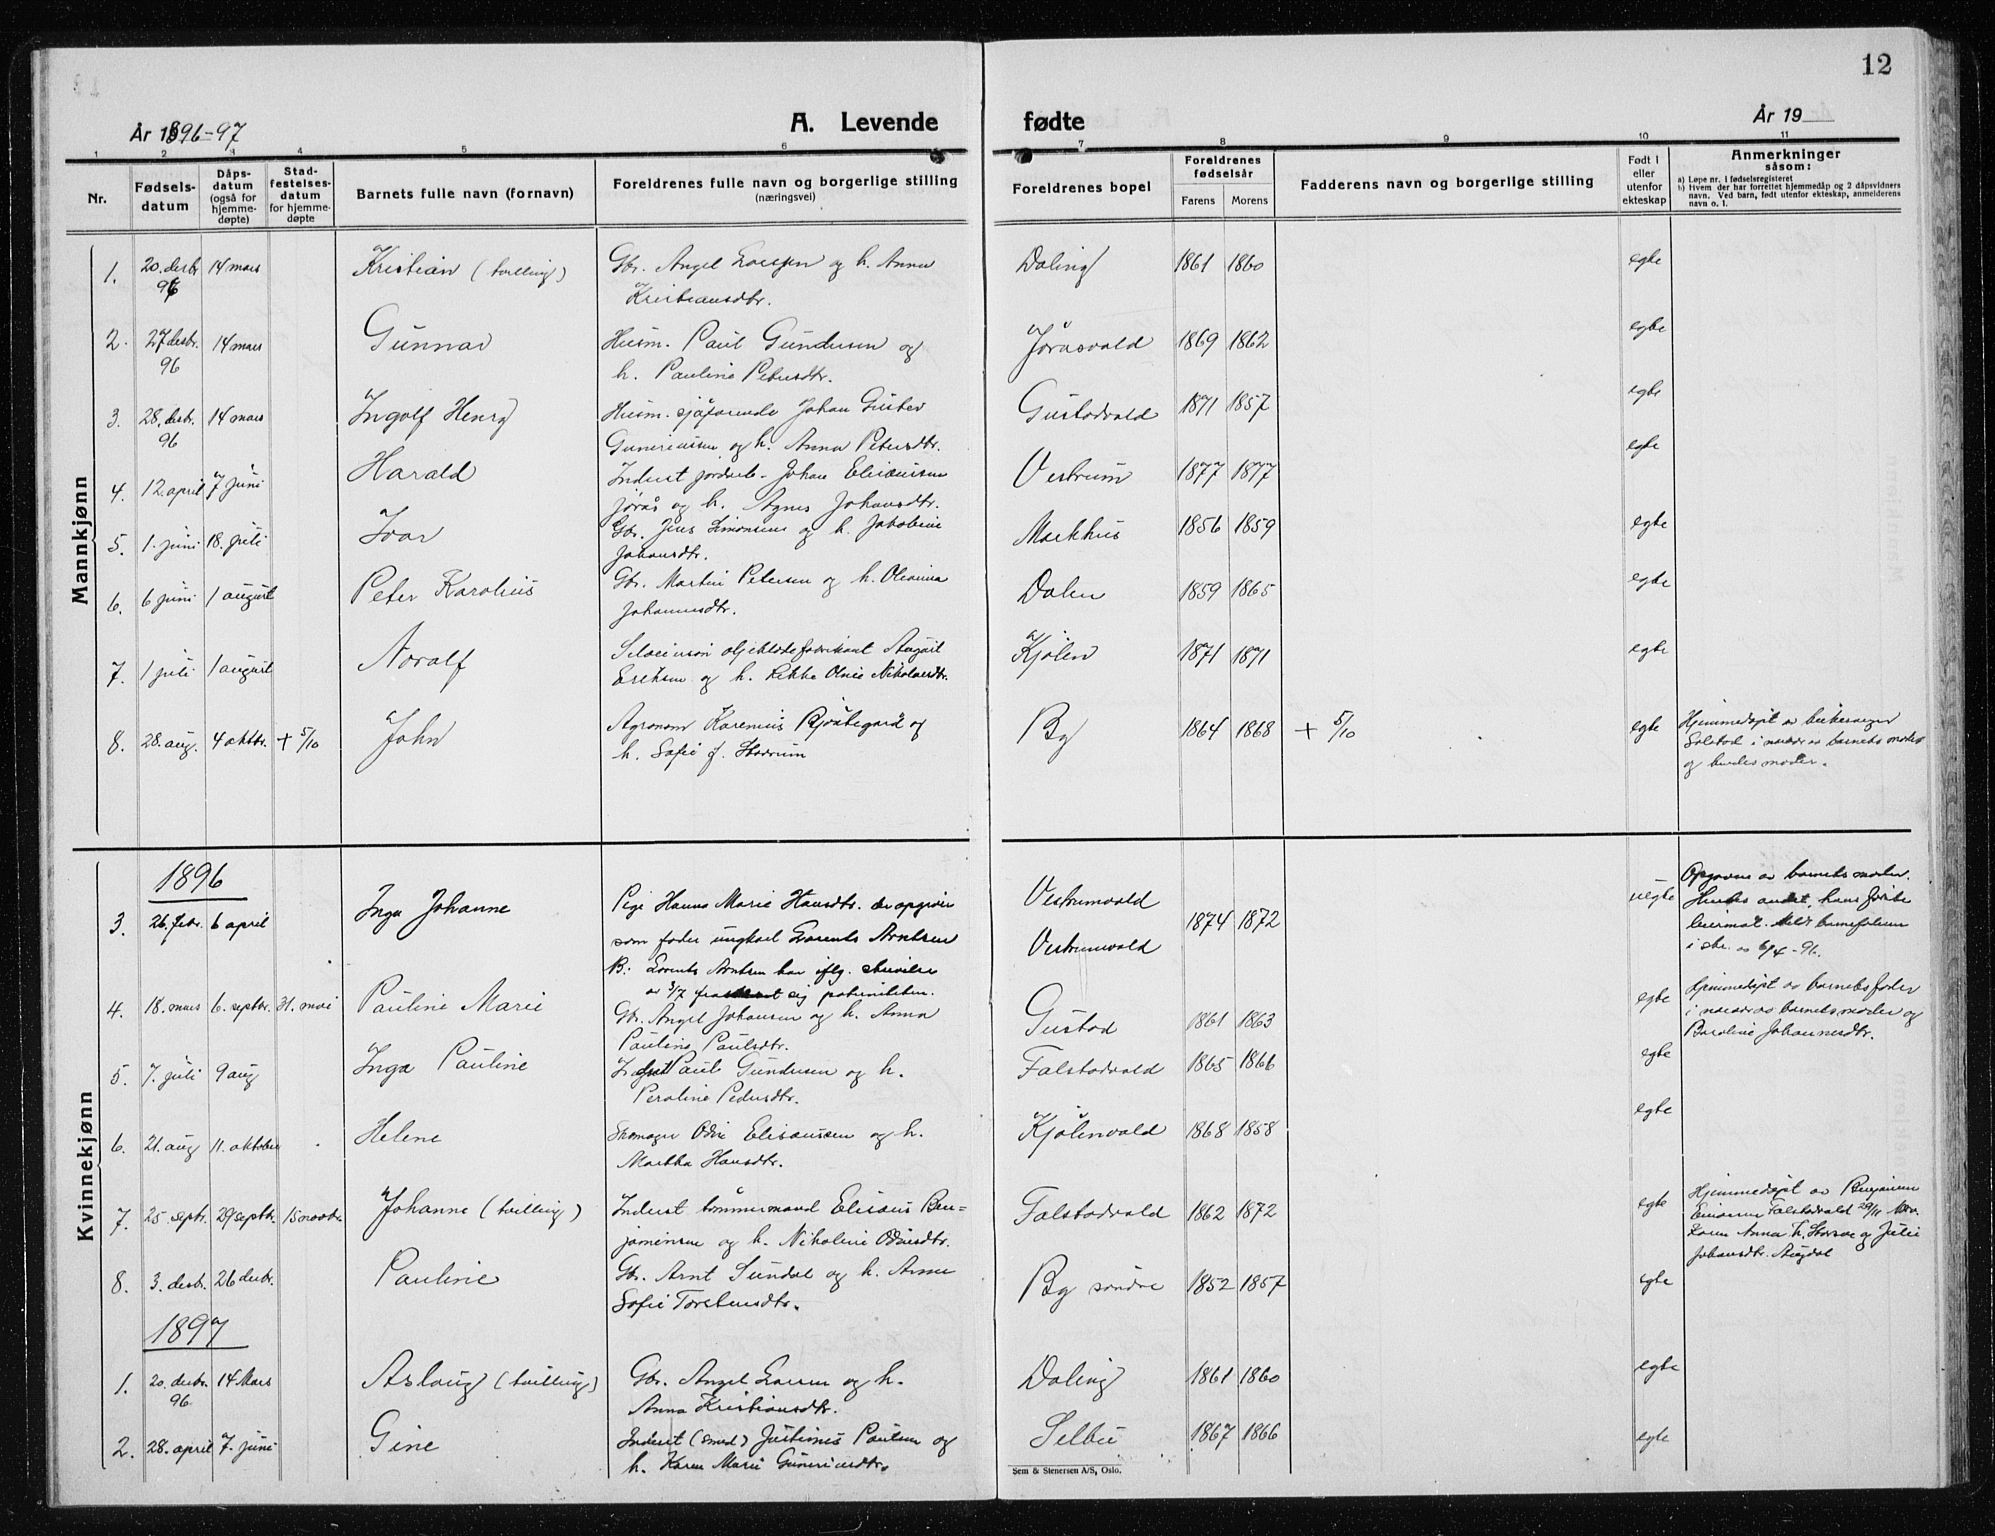 12
År 1896-97
A. Levende fødte
År 19
1 2 3 4 5 6 7 8 9 10 11
Nr.
Fødsels-
datum
Dåps-
datum
(også for
hjemme-
døpte)
Stad-
festelses-
datum
for hjemme-
døpte
Barnets fulle navn (fornavn)
Foreldrenes fulle navn og borgerlige stilling
(næringsvei)
Foreldrenes bopel
Foreldrenes
fødselsår
Farens Morens
Fadderens navn og borgerlige stilling
Født i
eller
utenfor
ekteskap
Anmerkninger
såsom:
a) Løpe nr. i fødselsregisteret
b) Hvem der har forrettet hjemmedåp og 2 dåpsvidners
navn. Ved barn, født utenfor ekteskap, anmelderens
navn o. l.
Mannkjønn
1. 20. desbr. 96 14 mars Kristian (tvilling) Gbr. Angel Larsen og h. Anna
Kristiansdtr. Daling 1861 1860 egte
2. 27 desbr. 96 14 mars Gunnar Husm. Paul Gundersen og
h. Pauline Petersdtr. Jøråsvald 1869 1862 egte
3. 28. desbr. 96 14 mars Ingolf Henry Husm. sjøfarende Johan Gustav
og h. Anna Petersdtr. Gustadvald 1871 1857 egte
4. 12. april 7 juni Harald Inderst Johan Eliseussen
Jørås og h. Agnes Johansdtr. Vestrum 1877 1877 egte
5. 1. juni 18. juli Ivar Gbr. Jens Simonsen og h. Jakobine
Johansdtr. Markhus 1856 1859 egte
6. 6 juni 1 august Peter Karolius Gbr. Martin Petersen og h. Oleanna
Johannesdtr. Dalen 1859 1865 egte
7. 1 juli 1 august Noralf August
Eriksen og h. Nikolaisdtr. Kjølen 1871 1871 egte
8. 28. aug. 4 oktbr. + 5/10 John Agronom Karenius Rostegard og
h. Sofie f. Størrum By 1864 1868 + 5/10 egte Hjemmedøpt av kirkesanger
Solstad i nærvær av barnets moder
og hendes moder.
Kvinnekjønn
1896
3. 26. febr. 6 april Inga Johanne Pige Hanna Marie Hansdtr. der opgiver
som fader ungkarl Lorents Arntsen
B: Lorents Arntsen har iflg. skrivelse
av 3/7 sig paterniteten. Vestrumvald
Vestrumvald 1874 1872 uegte Opgaven av barnets moder.
Hendes andet, hans første
leiermål. Meldt barnefoderen
i skr. av 6/4-96.
4. 18. mars 6. septbr. 31. mai Pauline Marie Gbr. Angel Johansen og h. Anna
Pauline Paulsdtr. Gustad 1861 1863 egte Hjemmedøpt av barnets fader
i nærvær av barnets moder og
Johannesdtr.
5. 7. juli 9 aug Inga Pauline Inderst Paul Gundersen og h.
Peroline Pedersdtr. Falstadvald 1865 1866 egte
6. 21. aug 11. oktober Helene Skomager Odin Eliseussen og h.
Martha Hansdtr. Kjølenvald 1868 1858 egte
7. 25 septr. 29 septbr. 15 novbr. Johanne (tvilling) Inderst tømmermand Eliseus Ben-
jaminsen og h. Nikoline Odinsdtr. Falstadvald 1862 1872 egte Hjemmedøpt av Benjamin
Falstadvald 29/11
Anna K. og Julie
Johansdtr. Augdal
8. 3. desbr. 26 desbr. Pauline Gbr. Arnt Sundal og h. Anne
Sofie Torstensdtr. By søndre 1852 1857 egte
1897
1. 20. desbr. 96 14 Mars Aslaug (tvilling) Gbr. Angel Larsen og h.
Anna Kristiansdtr. Daling 1861 1860 egte
2. 28. april 7. juni Gine Inderst (smed) Justinus Paulsen og
h. Karen Marie Guneriusdtr. Selbu 1867 1866 egte
Sem & Stenersen A/S, Oslo.